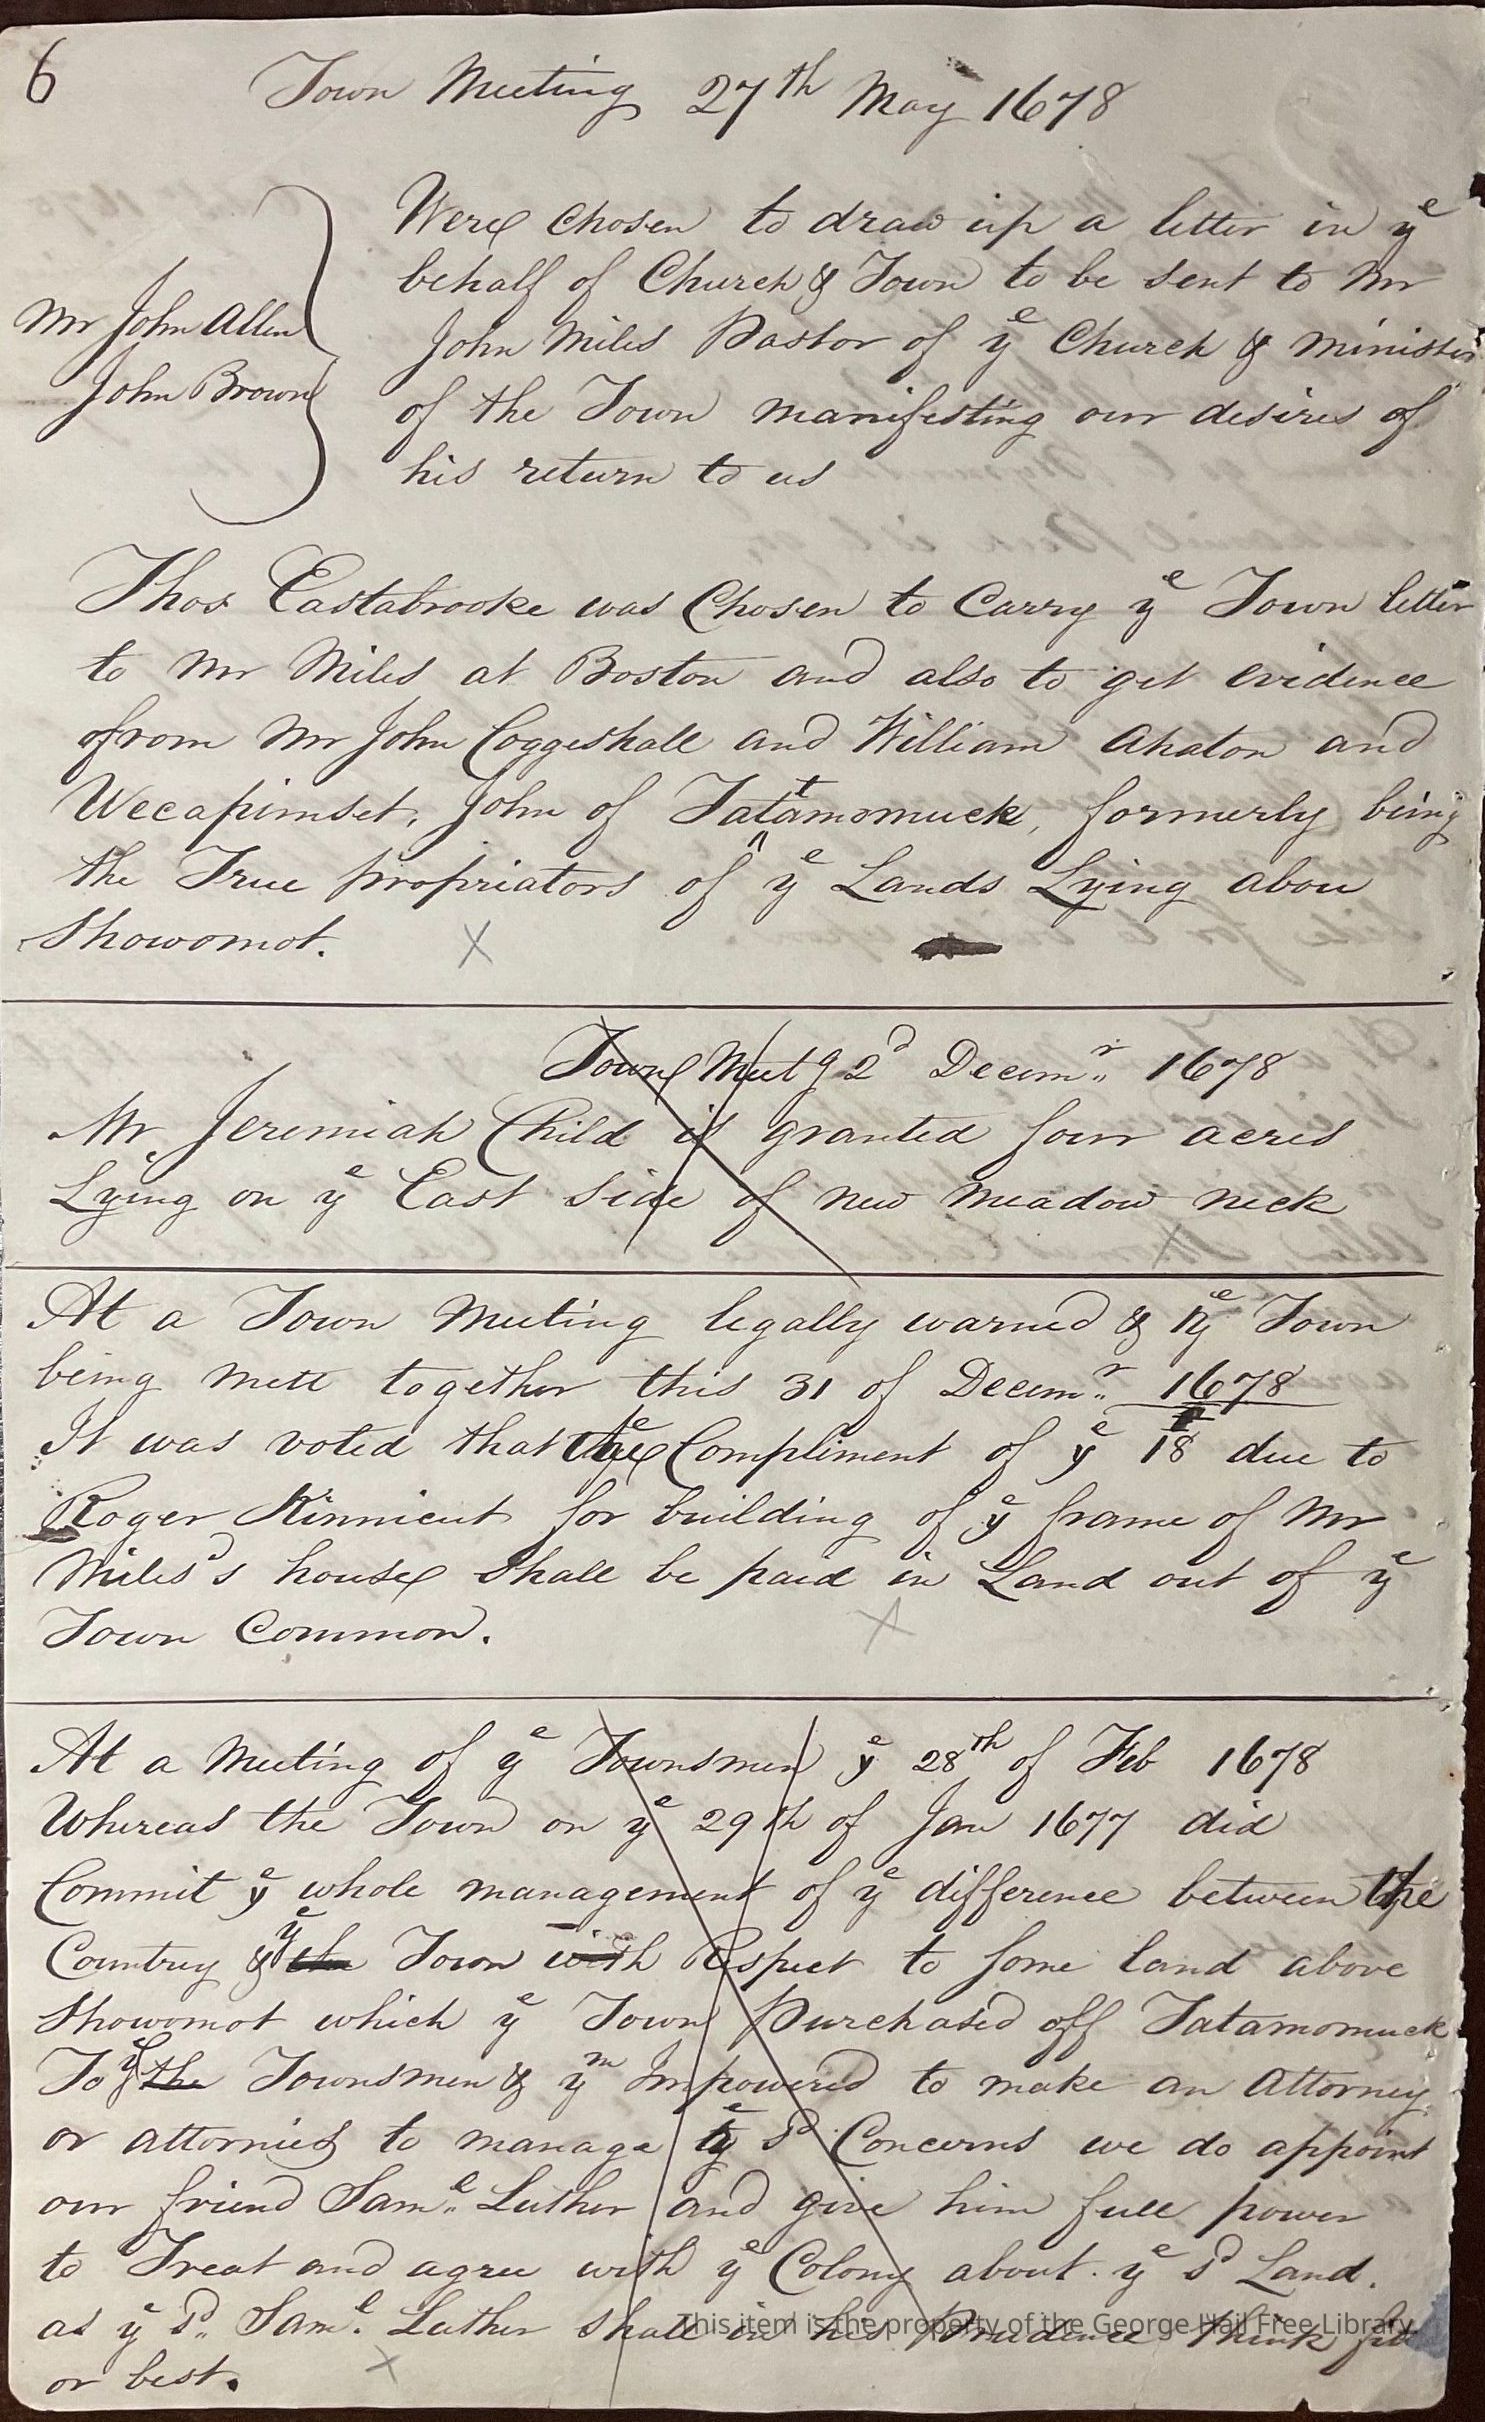 6
Town Meeting 27th May 1678
Mr John Allen
John Brown
Were Chosen to draw up a letter in ye
behalf of Church & Town to be sent to Mr
John Miles Pastor of ye Church & minister
of the Town manifesting our desires of
his return to us
Thos Eastabrooke was Chosen to Carry ye Town letter
to Mr Miles at Boston and also to get evidence
from Mr John Coggeshall and William Ahaton and
Wecapimset, John of Tattamomuck, formerly being
the True propriators of ye Lands Lying abou
Showomot.
Town Meetg 2d Decemr 1678
Mr Jeremiah Child is granted four acres
Lying on ye East side of new meadow neck
At a Town Meeting legally warned & ye Town
being mett together this 31 of Decemr 1678
It was voted that ye Compliment of ye 18 due to
Roger Kinnicut for building of ye frame of Mr
Miles's house shall be paid in Land out of ye
Town Common.
At a Meeting of ye Townsmen ye 28th of Feb 1678
Whereas the Town on ye 29th of Jan 1677 did
Commit ye whole management of ye difference between the
Country & ye Town with Respect to some land above
Showomot which ye Town Purchased off Tatamomuck
To ye the Townsmen & ym Impowered to make an Attorney
or attornies to manage ye sd Concerns we do appoint
our friend Saml Luther and give him full power
to Treat and agree with ye Colony about ye sd Land.
as ye sd Saml Luther shall in his Prudence think fit
or best.
This item is the property of the George Hail Free Library.